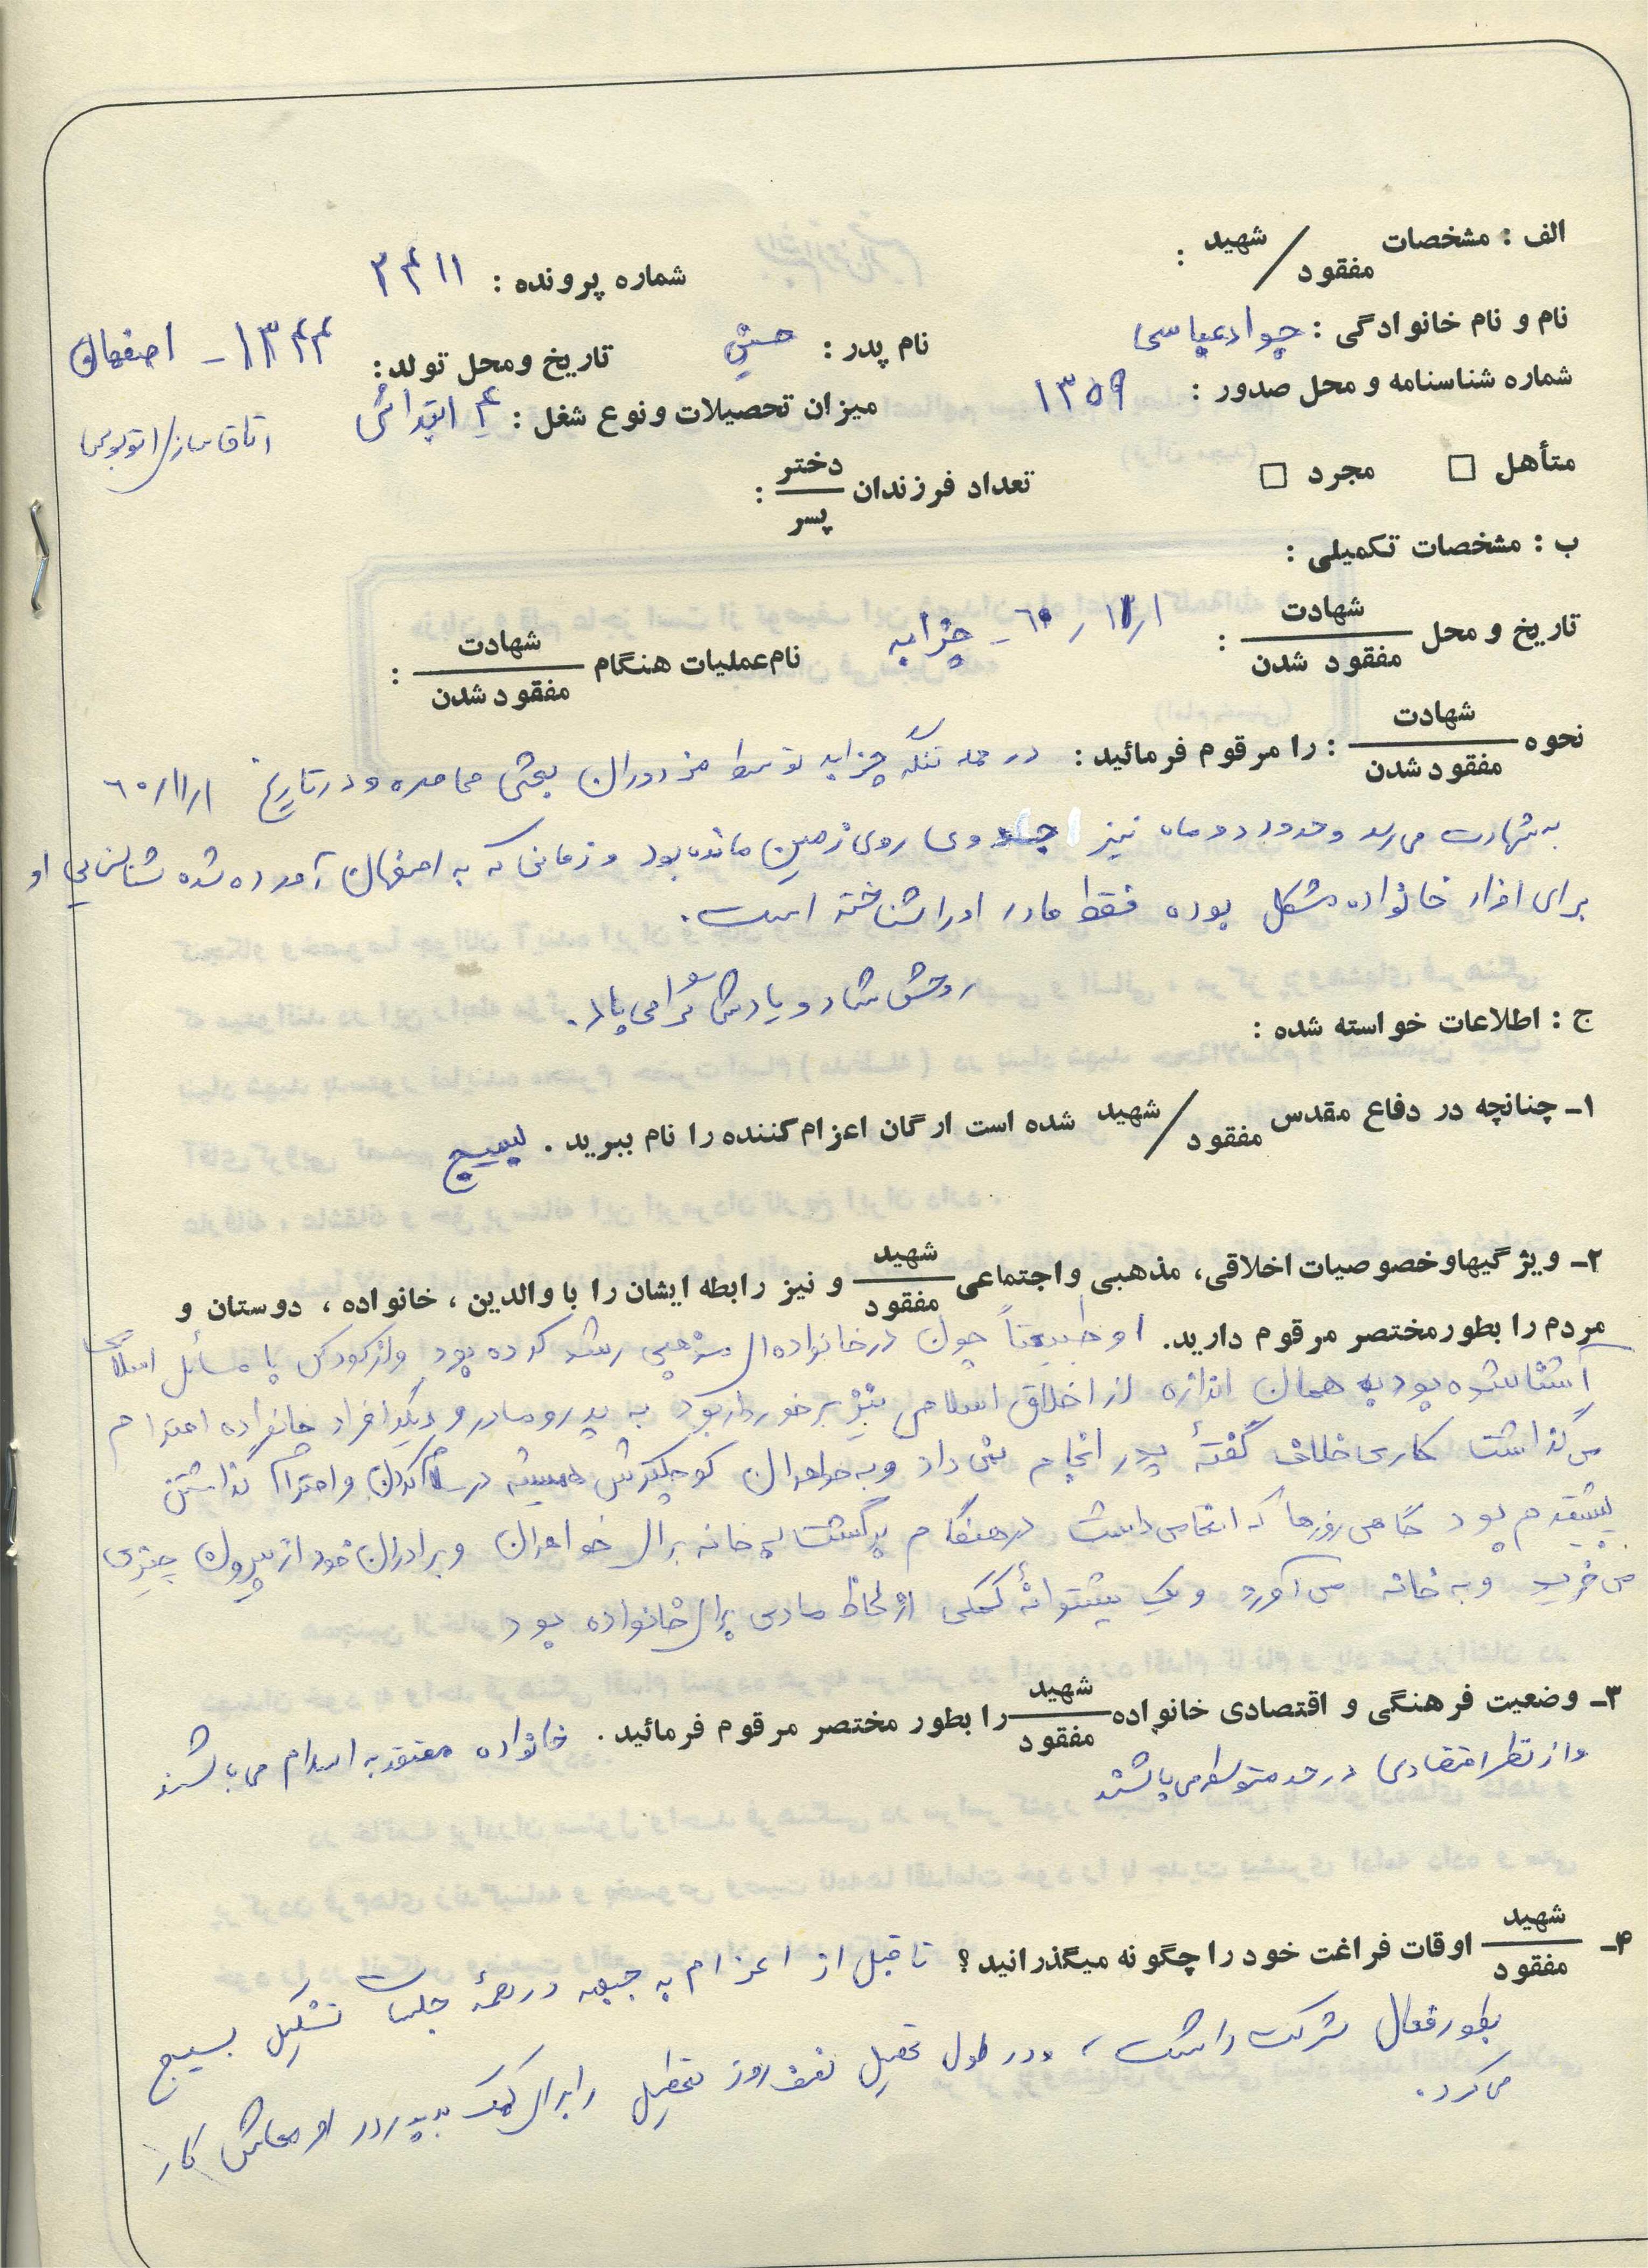 الف : مشخصات شهید / مفقود :
شماره پرونده : ۳۴۱۱
نام و نام خانوادگی : جواد عباسی
نام پدر : حسین
تاریخ ومحل تولد : ۱۳۴۴ - اصفهان
شماره شناسنامه و محل صدور : ۱۳۵۹
میزان تحصیلات ونوع شغل : ۴ ابتدائی
اتاق سازی اتوبوس
متأهل □ مجرد □
تعداد فرزندان دختر / پسر :
ب : مشخصات تکمیلی :
تاریخ و محل شهادت / مفقود شدن : - چزابه
نام عملیات هنگام شهادت / مفقود شدن :
نحوه شهادت / مفقود شدن : را مرقوم فرمائید : در حمله تنگه چزابه توسط مزدوران بعثی محاصره و در تاریخ ۶۰/۱۱/۱
به شهادت می رسد و حدود دو ماه نیز وی روی زمین مانده بود و زمانی که به اصفهان آورده شده شناسایی او
برای افراد خانواده مشکل بوده فقط مادر او را شناخته است.
روحش شاد و یادش گرامی باد.
ج : اطلاعات خواسته شده :
۱ـ چنانچه در دفاع مقدس شهید / مفقود شده است ارگان اعزام کننده را نام ببرید . بسیج
۲ـ ویژگیهاوخصوصیات اخلاقی، مذهبی واجتماعی شهید / مفقود و نیز رابطه ایشان را با والدین ، خانواده ، دوستان و
مردم را بطورمختصر مرقوم دارید. او طبیعتاً چون در خانواده ای مذهبی رشد کرده بود واز کودکی با مسائل اسلامی
آشنا شده بود به همان اندازه از اخلاق اسلامی نیز برخوردار بود به پدر و مادر و دیگر افراد خانواده احترام
می گذاشت کاری خلاف گفتهٔ پدر انجام نمی داد و به خواهران کوچکترش همیشه در سلام کردن و احترام گذاشتن
پیشقدم بود گاهی روزها که در هنگام برگشت به خانه برای خواهران و برادران خود از بیرون چیزی
می خرید و به خانه می آورد و یک پشتوانهٔ کمکی از لحاظ مادی برای خانواده بود
۳ـ وضعیت فرهنگی و اقتصادی خانواده شهید / مفقود را بطور مختصر مرقوم فرمائید . خانواده معتقد به اسلام می باشند
و از نظر اقتصادی در حد متوسط می باشند
۴ـ شهید / مفقود اوقات فراغت خود را چگونه میگذرانید؟ تا قبل از اعزام به جبهه در همهٔ جلسات تشکیل بسیج
بطور فعال شرکت داشت ، و در طول تحصیل نصف روز تعطیل را برای کمک به پدر در امر معاش کار
می کرد.